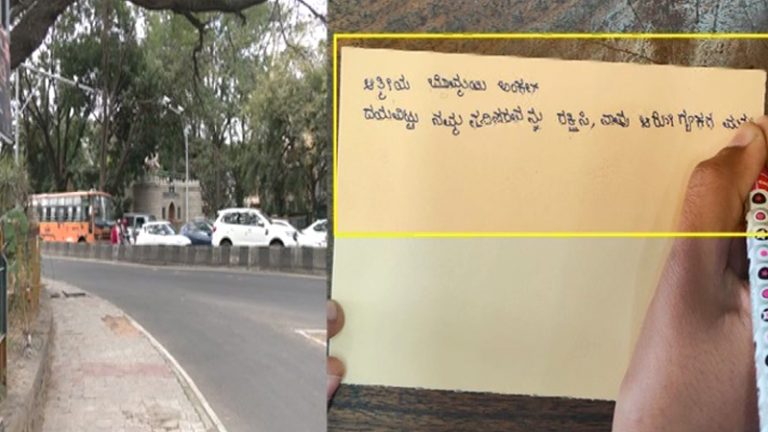 ಆತ್ಮೀಯ ಬೊಮ್ಮಾಯಿ ಅಂಕಲ್
ದಯವಿಟ್ಟು ನಮ್ಮ ಪರಿಸರವನ್ನು ರಕ್ಷಿಸಿ, ನಾವು ಆರೋಗ್ಯಕರ